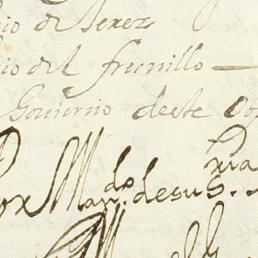 io de Jerez
io del fresnillo
Govierno deste Ob
Por Man.do de su S.ria